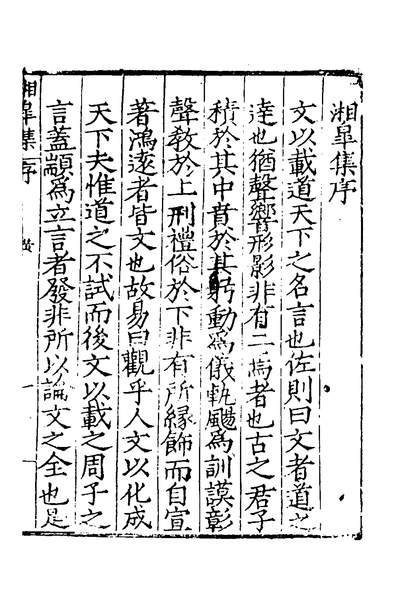 湘皐集序
文以載道天下之名言也佐則曰文者道之
逹也猶聲響形影非有二焉者也古之君子
積於其中眘於其躬動為儀軌颺為訓謨彰
聲敎於上刑禮俗於下非有所緣飾而自宣
著鴻逺者皆文也故易曰觀乎人文以化成
天下夫惟道之不試而後文以載之周子之
言蓋顓為立言者發非所以論文之全也是
湘皐集序